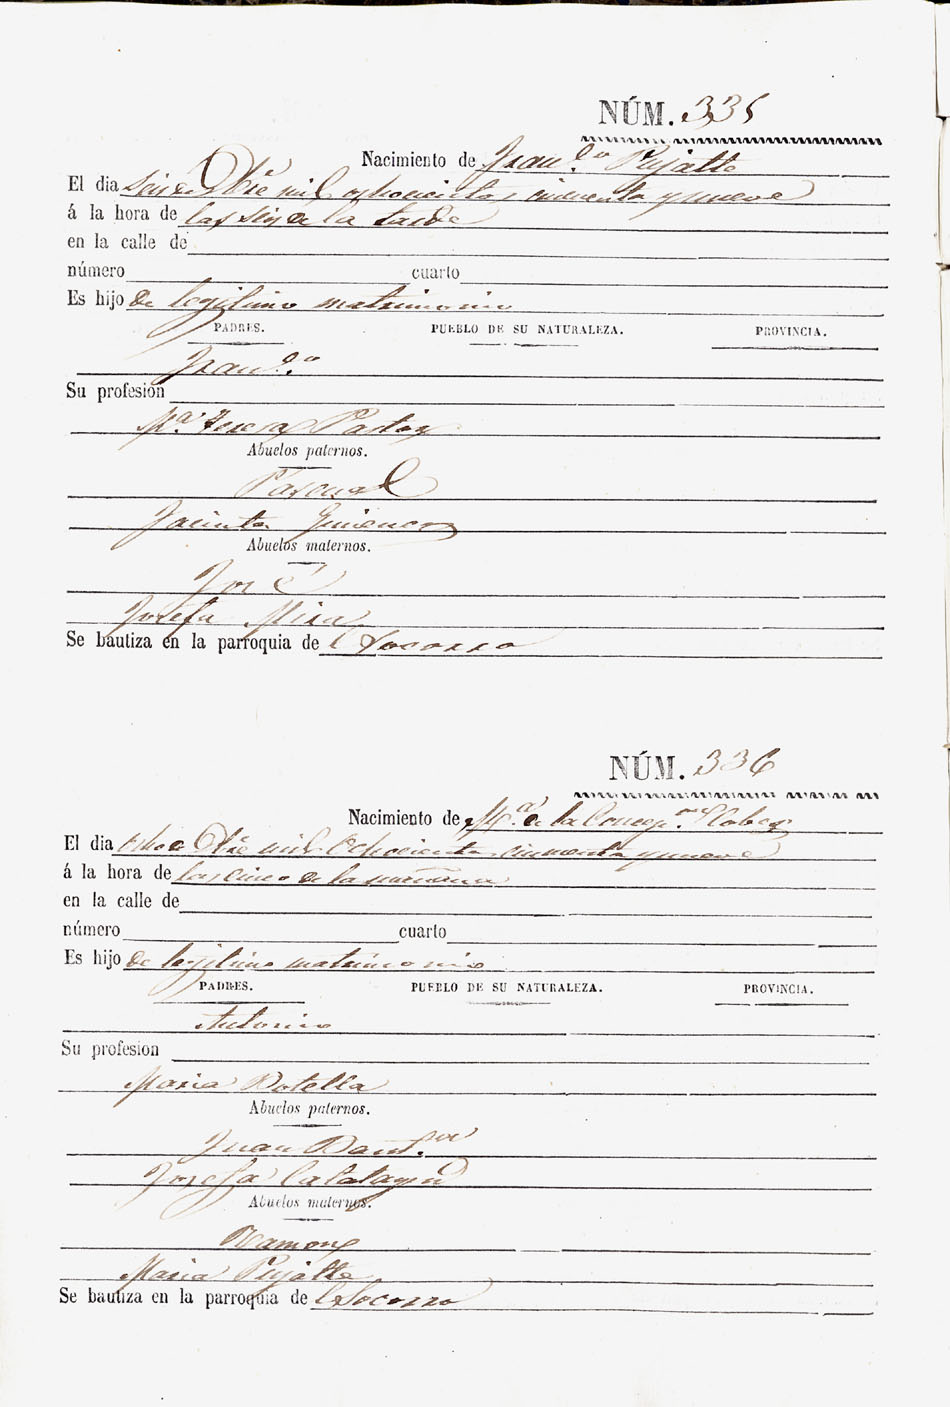 NÚM. 335
Nacimiento de Fran.co Pujalte
El dia seis de Dbre mil ochocientos cincuenta y nueve
á la hora de las seis de la tarde
en la calle de
número cuarto
Es hijo de legitimo matrimonio
PADRES. PUEBLO DE SU NATURALEZA. PROVINCIA.
Fran.co
Su profesión
Ma. Teresa Pastor
Abuelos paternos.
Pascual
Jacinta Gimenez
Abuelos maternos.
José
Josefa Mira
Se bautiza en la parroquia de l Socorro
NÚM. 336
Nacimiento de Ma. de la Concepn.
El dia ocho Dbre mil Ochocientos cincuenta y nueve
á la hora de las cinco de la mañana
en la calle de
número cuarto
Es hijo de legitimo matrimonio
PADRES. PUEBLO DE SU NATURALEZA. PROVINCIA.
Antonio
Su profesion
Maria Botella
Abuelos paternos.
Juan Baut.
Josefa Calatayud
Abuelos maternos.
Ramon
Maria Pujalte
Se bautiza en la parroquia de l Socorro